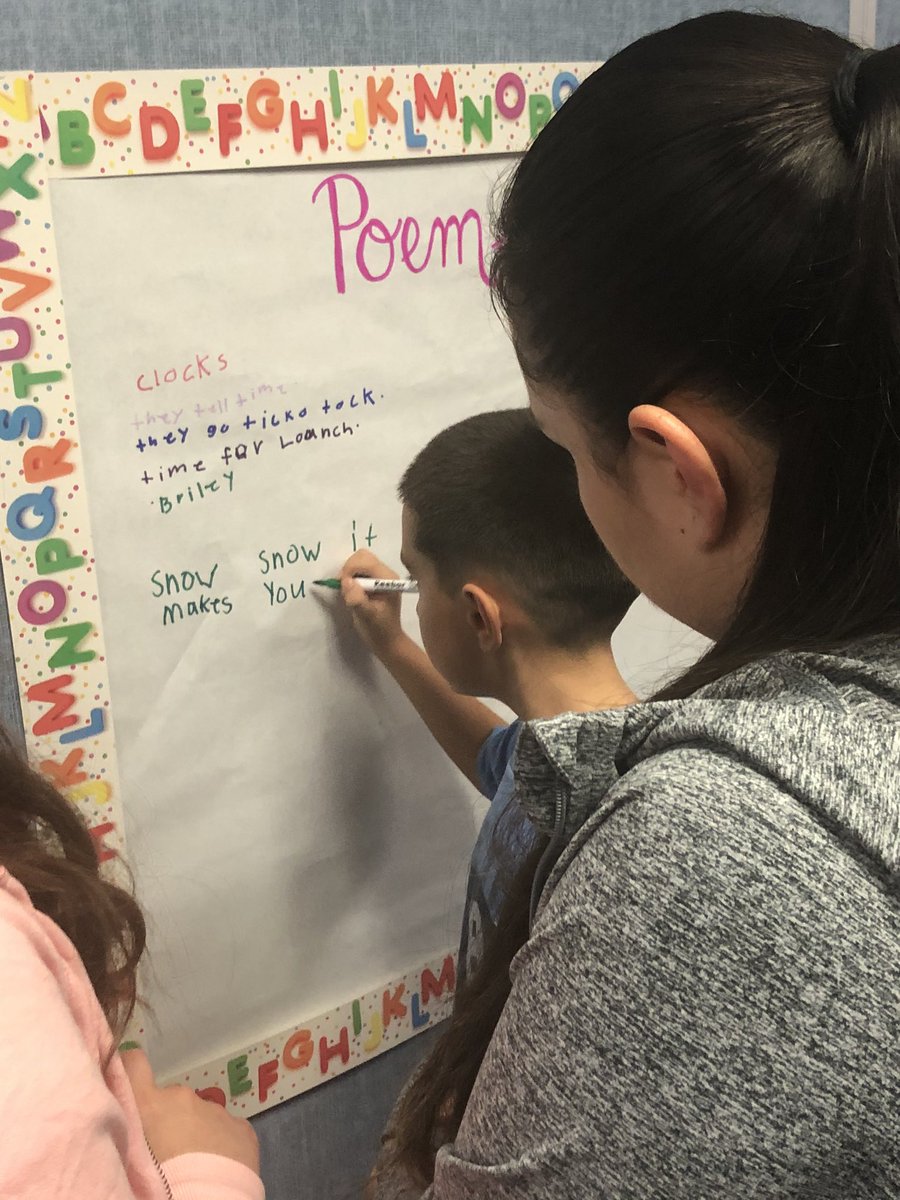 B C D E F G H I J K L M N O P Q
Poem
clocks
they tell time
they go ticko tock.
time for Loanch.
Briley
Snow Snow it
makes You
Z
X
W
V
U
T
S
R
Q
P
O
N
M
L
K
J
D E F G H I J K L M